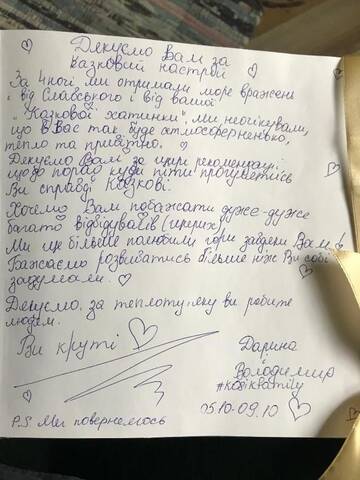 Дякуємо Вам за
казковий настрій
За 4 ночі ми отримали море вражень
і від Славського і від вашої
"Казкової хатинки", ми неочікували,
що в Вас так буде атмосферненько,
тепло та привітно.
Дякуємо Вам за щирі рекомендації
щодо порад куди піти прогулятись
Ви справді Казкові.
Хочемо Вам побажати дуже-дуже
багато відвідувачів (щирих)
Ми ще більше полюбили гори завдяки Вам!
Бажаємо розвиватись більше ніж Ви собі
задумали.
Дякуємо за теплоту, яку ви робите
людям.
Ви круті
Дарина
і
Володимир
#kosikfamily
05.10-09.10
P.S Ми повернемось